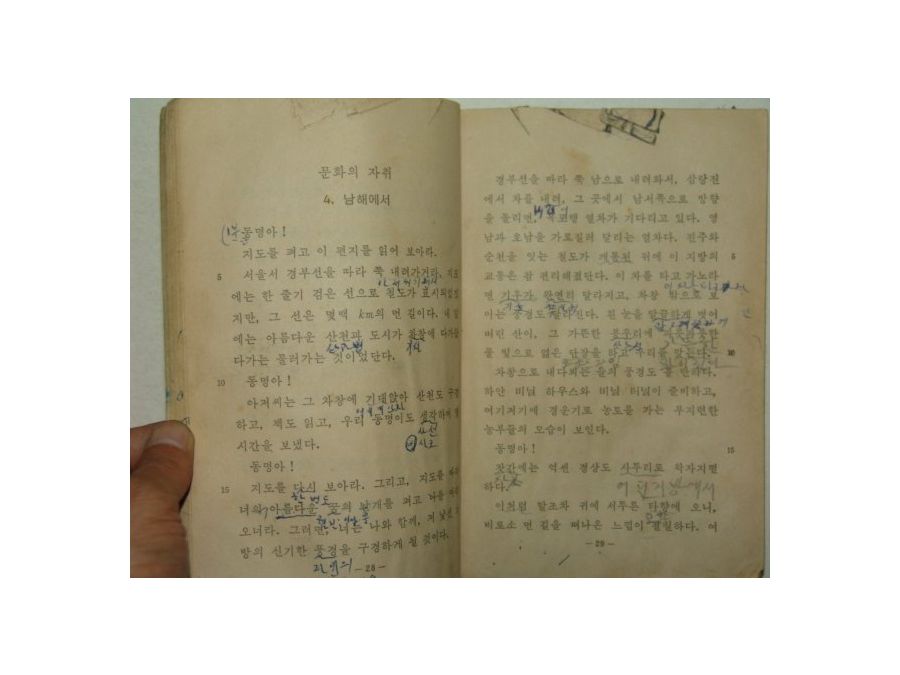 문화의 자취
4. 남해에서
동명아!
지도를 펴고 이 편지를 읽어 보아라.
5 서울서 경부선을 따라 쭉 내려가거라. 지도
에는 한 줄기 검은 선으로 철도가 표시되었
지만, 그 선은 몇백 km의 먼 길이다. 내
에는 아름다운 산천과 도시가 차창에 다가
다가는 물러가는 것이었단다.
10 동명아!
아저씨는 그 차창에 기대앉아 산천도 구경
하고, 책도 읽고, 우리 동명이도 생각하며
시간을 보냈다.
동명아!
15 지도를 다시 보아라. 그리고, 지도를
너의 아름다운 꿈의 날개를 펴고 나를
오너라. 그러면, 너는 나와 함께, 저 낯선
방의 신기한 풍경을 구경하게 될 것이다.
한 번도
—28—
경부선을 따라 쭉 남으로 내려와서, 삼랑진
에서 차를 내려, 그 곳에서 남서쪽으로 방향
을 돌리면, 열차가 기다리고 있다. 영
남과 호남을 가로질러 달리는 열차다. 진주와
순천을 잇는 철도가 개통된 뒤에 이 지방의 5
교통은 참 편리해졌단다. 이 차를 타고 가노라
면 기후가 완연히 달라지고, 차창 밖으로 보
이는 풍경도 달라진다. 흰 눈을 말끔하게 벗어
버린 산이, 그 가뿐한 봉우리에
물 빛으로 엷은 단장을 하고 우리를 맞는다. 10
차창으로 내다뵈는 들의 풍경도 꽤 다르다.
하얀 비닐 하우스와 비닐 터널이 즐비하고,
여기저기에 경운기로 농토를 가는 부지런한
농부들의 모습이 보인다.
동명아! 15
찻간에는 억센 경상도 사투리로 왁자지껄
하다.
이처럼 말조차 귀에 서투른 타향에 오니,
비로소 먼 길을 떠나온 느낌이 절실하다. 여
—29—